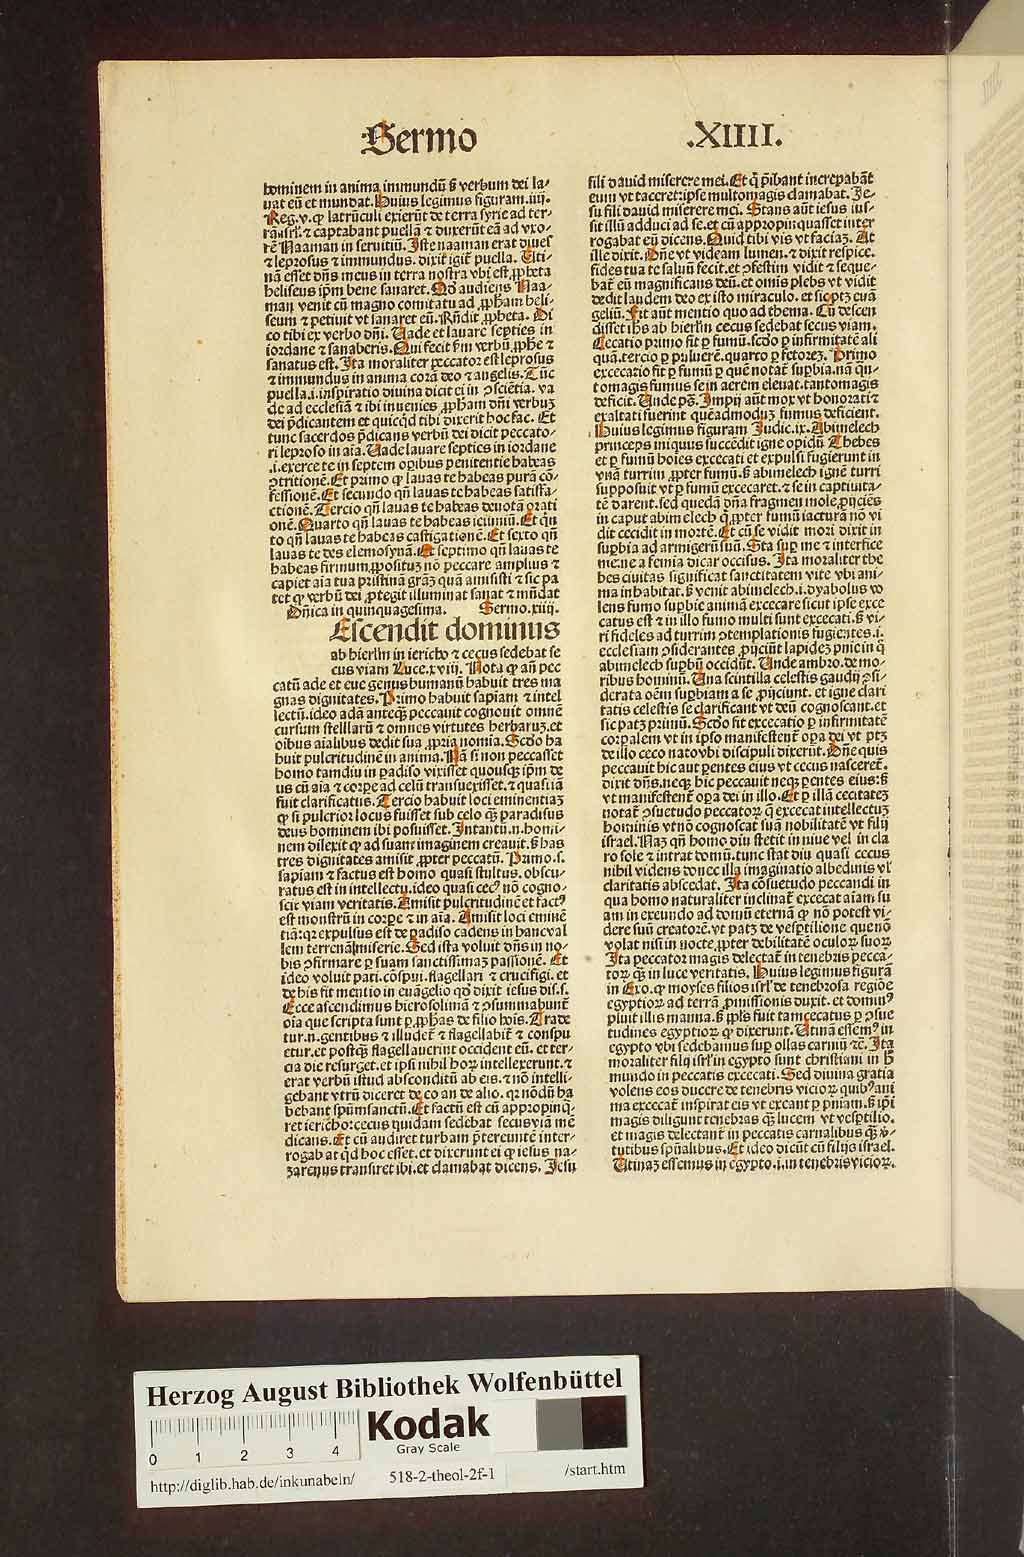 Sermo
.XIIII.
hominem in anima immundū ſꝫ verbum dei la-
uat eū et mundat. Huius legimus figuram .iiij.
Reg. v. ꝙ latrūculi exierūt de terra ſyrie ad ter-
rā iſrl'. ⁊ captabant puellā ⁊ duxerūt eā ad vxo-
rē Naaman in ſeruitiū. Iſte naaman erat diues
⁊ leproſus ⁊ immundus. dixit igit̄ puella. Uti-
nā eſſet dn̄s meus in terra noſtra vbi eſt ꝓpheta
heliſeus ip̄m bene ſanaret. Qd̄ audiens Naa-
man venit cū magno comitatu ad ꝓphām heli-
ſeum ⁊ petiuit vt ſanaret eū. Rn̄dit ꝓpheta. Di
co tibi ex verbo dn̄i. Uade et lauare ſepties in
iordane ⁊ ſanaberis. Qui fecit ẜm verbū ꝓphe ⁊
ſanatus eſt. Ita moraliter peccator eſt leproſus
⁊ immundus in anima corā deo ⁊ angelis. Tūc
puella .i. inſpiratio diuina dicit ei in ꝯſciētia. va
de ad eccleſiā ⁊ ibi inuenies ꝓphām dn̄i verbuꝫ
dei p̄dicantem et quicqd̄ tibi dixerit hoc fac. Et
tunc ſacerdos p̄dicans verbū dei dicit peccato-
ri leproſo in aīa. Uade lauare ſepties in iordane
.i. exerce te in ſeptem oꝑibus penitentie habeas
ꝯtritionē. Et primo ꝙ lauas te habeas purā cō-
feſſionē. Et ſecundo qn̄ lauas te habeas ſatiſfa-
ctionē. Tercio qn̄ lauas te habeas deuotā orati
onē. Quarto qn̄ lauas te habeas ieiuniū. Et qn̄
to qn̄ lauas te habeas caſtigationē. Et ſexto qn̄
lauas te des elemoſynā. Et ſeptimo qn̄ lauas te
habeas firmum ꝓpoſituꝫ nō peccare amplius ⁊
capiet aīa tua priſtinā grāꝫ quā amiſiſti ⁊ ſic pa
tet ꝙ verbū dei ꝓtegit illuminat ſanat ⁊ mūdat
Dn̄ica in quinquageſima. Sermo. xiiij.
Eſcendit dominus
ab hierlm̄ in iericho ⁊ cecus ſedebat ſe
cus viam Luce. xviij. Nota ꝙ an̄ pec
catū ade et eue genus humanū habuit tres ma
gnas dignitates. Primo habuit ſapiam̄ ⁊ intel
lectū. ideo adā anteqꝫ peccauit cognouit omnē
curſum ſtellarū ⁊ omnes virtutes herbaruꝫ. et
oībus aīalibus dedit ſua ꝓpria nomīa. Scd̄o ha
buit pulcritudinē in anima. Nā ſi non peccaſſet
homo tamdiu in paradiſo vixiſſet quouſqꝫ ip̄m de
us cū aīa ⁊ corpe ad celū tranſuexiſſet. ⁊ quaſi ia
fuit clarificatus. Tercio habuit loci eminentiaꝫ
ꝙ ſi pulcrior locus fuiſſet ſub celo qꝫ paradiſus
deus hominem ibi poſuiſſet. Intantū .n. homi-
nem dilexit ꝙ ad ſuam imaginem creauit. ſꝫ has
tres dignitates amiſit ꝓpter peccatū. Primo .ſ.
ſapiam̄ ⁊ factus eſt homo quaſi ſtultus. obſcu-
ratus eſt in intellectu. ideo quaſi cecꝰ nō cogno-
ſcit viam veritatis. Amiſit pulcritudinē et factꝰ
eſt monſtrū in corpe ⁊ in aīa. Amiſit loci eminē
tiā: qꝛ expulſus eſt de paradiſo cadens in hanc val
lem terrenā miſerie. Sed iſta voluit dn̄s in no-
bis ꝯfirmare ꝑ ſuam ſanctiſſimaꝫ paſſionē. Et
ideo voluit pati. cōſpui. flagellari ⁊ crucifigi. et
de his fit mentio in euāgelio qd̄ dixit ieſus diſ.ſ.
Ecce aſcendimus hieroſolimā ⁊ ꝯſummabunt̄
oīa que ſcripta ſunt ꝑ ꝓphās de filio hoīs. Trade
tur .n. gentibus ⁊ illudet̄ ⁊ flagellabit̄ ⁊ conſpu
etur. et poſtqꝫ flagellauerint occident eū. et ter-
cia die reſurget. et ipſi nihil hoꝝ intellexerunt. ⁊
erat verbū iſtud abſconditū ab eis. ⁊ nō intelli-
gebant vtrū diceret de eo an de alio. qꝛ nōdū ha
bebant ſpūmſanctū. Et factū eſt cū appropinq̄-
ret iericho: cecus quidam ſedebat ſecus viā mē
dicans. Et cū audiret turbam p̄tereuntē inter-
rogabat qd̄ hoc eſſet. et dixerunt ei ꝙ ieſus na-
zarenus tranſiret ibi. et clamabat dicens. Jeſu
fili dauid miſerere mei. Et q̄ p̄ibant increpabāt
eum vt taceret: ipſe multomagis clamabat. Je-
ſu fili dauid miſerere mei. Stans aūt ieſus iuſ-
ſit illū adduci ad ſe. et cū appropinquaſſet inter
rogabat eū dicens. Quid tibi vis vt faciaꝫ. At
ille dixit. Dn̄e vt videam lumen. ⁊ dixit reſpice.
fides tua te ſaluū fecit. et ꝯfeſtim vidit ⁊ ſeque-
bat̄ eū magnificans deū. et omīs plebs vt vidit
dedit laudem deo ex iſto miraculo. et ſic ptꝫ euā
geliū. Fit aūt mentio quo ad thema. Cū deſcen
diſſet ih̄s ab hierlm̄ cecus ſedebat ſecus viam.
Cecatio primo fit ꝑ fumū. ſcd̄o ꝑ infirmitatē ali
quā. tercio ꝑ puluerē. quarto ꝑ fetoreꝫ. Primo
excecatio fit ꝑ fumū ꝑ quē notat̄ ſuꝑbia. nā qn̄-
tomagis fumus ſe in aerem eleuat. tantomagis
deficit. Unde ps̄. Impij aūt mox vt honorati ⁊
exaltati fuerint quēadmoduꝫ fumus deficient.
Huius legimus figuram Judic. ix. Abimelech
princeps iniquus ſuccēdit igne opidū Thebes
et ꝑ fumū hoīes excecati et expulſi fugierunt in
vnā turrim ꝓpter fumū. ſꝫ abimelech ignē turri
ſuppoſuit vt ꝑ fumū excecaret. ⁊ ſe in captiuita-
tē darent. ſed quedā dn̄a fragmen mole ꝓijciēs
in caput abimelech q̄ ꝓpter fumū iacturā nō vi
dit cecidit in mortē. Et cū ſe vidit mori dixit in
ſuꝑbia ad armigerū ſuū. Sta ſuꝑ me ⁊ interfice
me. ne a femīa dicar occiſus. Ita moraliter the
bes ciuitas ſignificat ſanctitatem vite vbi ani-
ma inhabitat. ſꝫ venit abimelech .i. dyabolus vo
lens fumo ſuꝑbie animā excecare ſicut ipſe exce
catus eſt ⁊ in illo fumo multi ſunt excecati. ſꝫ vi-
ri fideles ad turrim ꝯtemplationis fugientes .i.
eccleſiam ꝯſiderantes ꝓijciūt lapideꝫ pnīe in q̄
abimelech ſuꝑbū occidūt. Unde ambro. de mo-
ribus hominū. Una ſcintilla celeſtis gaudij ꝯſi-
derata oēm ſuꝑbiam a ſe ꝓijciunt. et igne clari
tatis celeſtis ſe clarificant vt deū cognoſcant. et
ſic patꝫ primū. Scd̄o fit excecatio ꝑ infirmitatē
corpalem vt in ipſo manifeſtent̄ oꝑa dei vt ptꝫ
de illo ceco nato vbi diſcipuli dixerūt. Dn̄e quis
peccauit hic aut parentes eius vt cecus naſceret̄.
dixit dn̄s. neqꝫ hic peccauit neqꝫ parentes eius: ſꝫ
vt manifeſtent̄ oꝑa dei in illo. Et ꝑ illā cecitateꝫ
notat̄ ꝯſuetudo peccatoꝝ q̄ excecat intellectuꝫ
hominis vt nō cognoſcat ſuā nobilitatē vt filij
iſrael. Naꝫ qn̄ homo diu ſtetit in niue vel in cla
ro ſole ⁊ intrat domū. tunc ſtat diu quaſi cecus
nihil videns donec illa imaginatio albedinis vl'
claritatis abſcedat. Ita cōſuetudo peccandi in
qua homo naturaliter inclinat̄ excecat aīam ſu
am in exeundo ad domū eternā ꝙ nō poteſt vi-
dere ſuū creatorē. vt patꝫ de veſptilione que nō
volat niſi in nocte ꝓpter debilitatē oculoꝝ ſuoꝝ
Ita peccator magis delectat̄ in tenebris pecca-
toꝝ qꝫ in luce veritatis. Huius legimus figurā
in Exo. ꝙ moyſes filios iſrl' de tenebroſa regiōe
egyptioꝝ ad terrā ꝓmiſſionis duxit. et dominꝰ
pluit illis manna. ſꝫ ppl̄s fuit tam cecatus ꝑ ꝯſue
tudines egyptioꝝ ꝙ dixerunt. Utinā eſſemꝰ in
egypto vbi ſedebamus ſuꝑ ollas carniū ⁊c̄. Ita
moraliter filij iſrl' in egypto ſunt chriſtiani in h̄
mundo in peccatis excecati. Sed diuina gratia
volens eos ducere de tenebris vicioꝝ quibꝰ ani
ma excecat̄ inſpirat eis vt exeant ꝑ pniam. ſꝫ ip̄i
magis diligunt tenebras qꝫ lucem vt veſptilio.
et magis delectant̄ in peccatis carnalibus qꝫ v̄-
tutibus ſpūalibus. Et ideo dicūt cū filijs iſrael.
Utinaꝫ eſſemus in egypto .i. in tenebris vicioꝝ.
Herzog August Bibliothek Wolfenbüttel
Kodak
Gray Scale
0 1 2 3 4
http://diglib.hab.de/inkunabeln/ 518-2-theol-2f-1 /start.htm